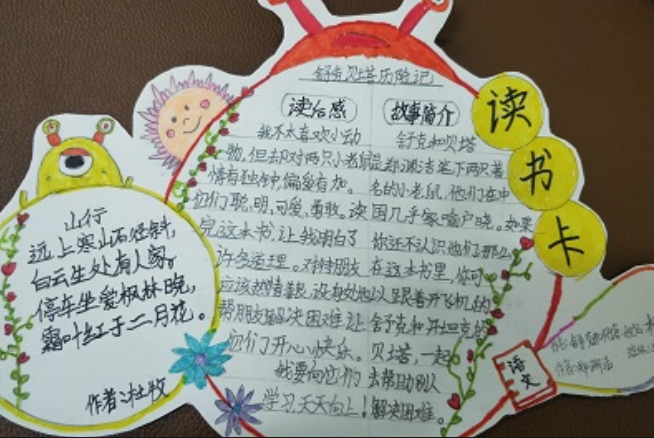 读书卡
舒克贝塔历险记
读后感
我不太喜欢小动
物，但却对两只小老鼠
情有独钟，偏爱有加。
他们聪明，可爱，勇敢。读
完这本书，让我明白了
许多道理。对待朋友
应该热情善良，设身处地
帮朋友解决困难，让
他们开心，快乐。
我要向它们
学习，天天向上！
故事简介
舒克和贝塔
是郑渊洁笔下两只著
名的小老鼠，他们在中
国几乎家喻户晓。如果
你还不认识他们，那么
在这本书里，你可
以跟着开飞机的
舒克和开坦克的
贝塔，一起
去帮助别人
解决困难。
山行
远上寒山石径斜，
白云生处有人家。
停车坐爱枫林晚，
霜叶红于二月花。
作者：杜牧
语文